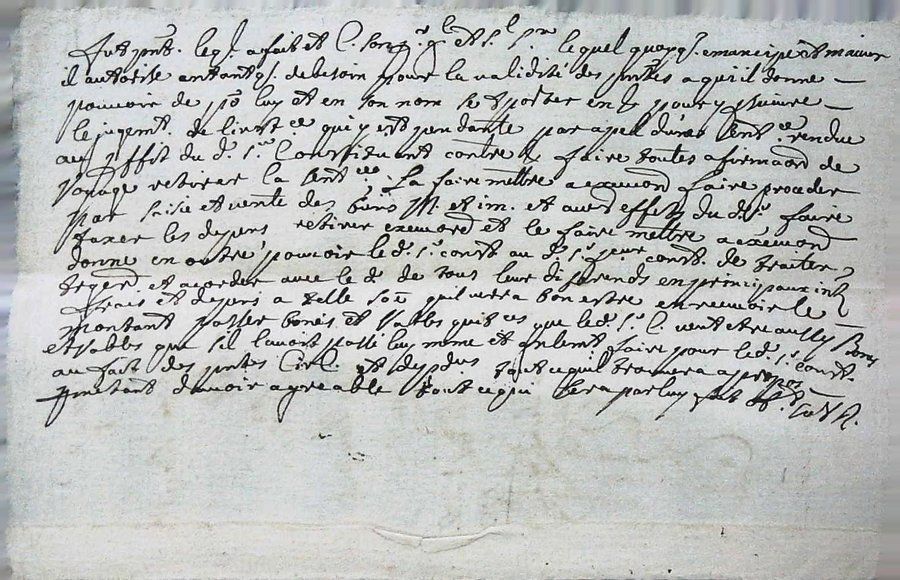 fut pnt. leql. a fait et C. son p. gl. et sl. pr. lequel quoyq. emancipé et maieur
il authorise entant q. de besoin pour la validité des pntes a qui il donne
pouvoir de pr luy et en son nom se tporter en la pour y psuivre
le jugemt. de linstce qui y est pendante par apel dune sentce rendue
au pffit du d. sr. Constituant contre faire toutes afirmaons de
voyage retirer la sentce la faire mettre a exeuon faire proceder
par saisie et vente des biens M. et im. et aud effet du d. sr. faire
taxer les depens retirer exeuore et le faire mettre a exeuon
donne en outre pouvoir led. sr. constt au d. sr. pcur constt. de traiter
trger et acorder avec le d. de tous leur diferends en principaux in
frais et depens a telle soe quil verra bon estre en recevoir le
montant passer bones et vables quitces que led. sr. C. veut etre aussy bones
et vables que sil lavoit passé luy meme et gnlemt faire pour led. sr. constt.
au fait des pntes circ. et depdces tout ce quil trouvera a propos
pmetant davoir agreable tout ce qui sera par luy fait